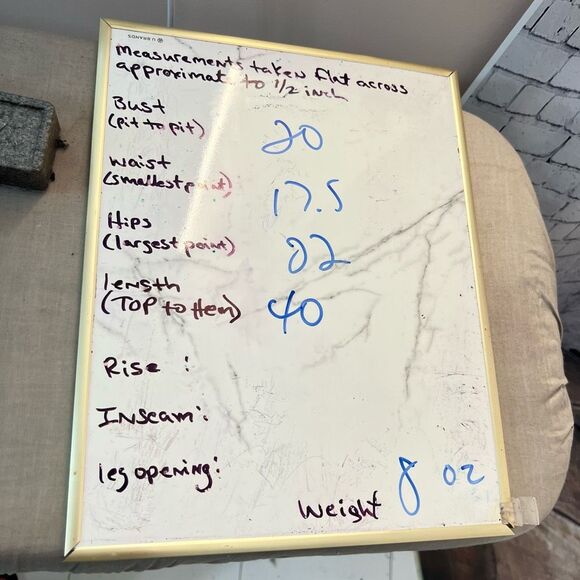 U BRANDS
measurements taken flat across
approximate to 1/2 inch
Bust
(pit to pit)
20
waist
(smallest point)
17.5
Hips
(largest point)
22
length
(TOP to Hem)
40
Rise :
Inseam:
leg opening:
Weight 8 oz